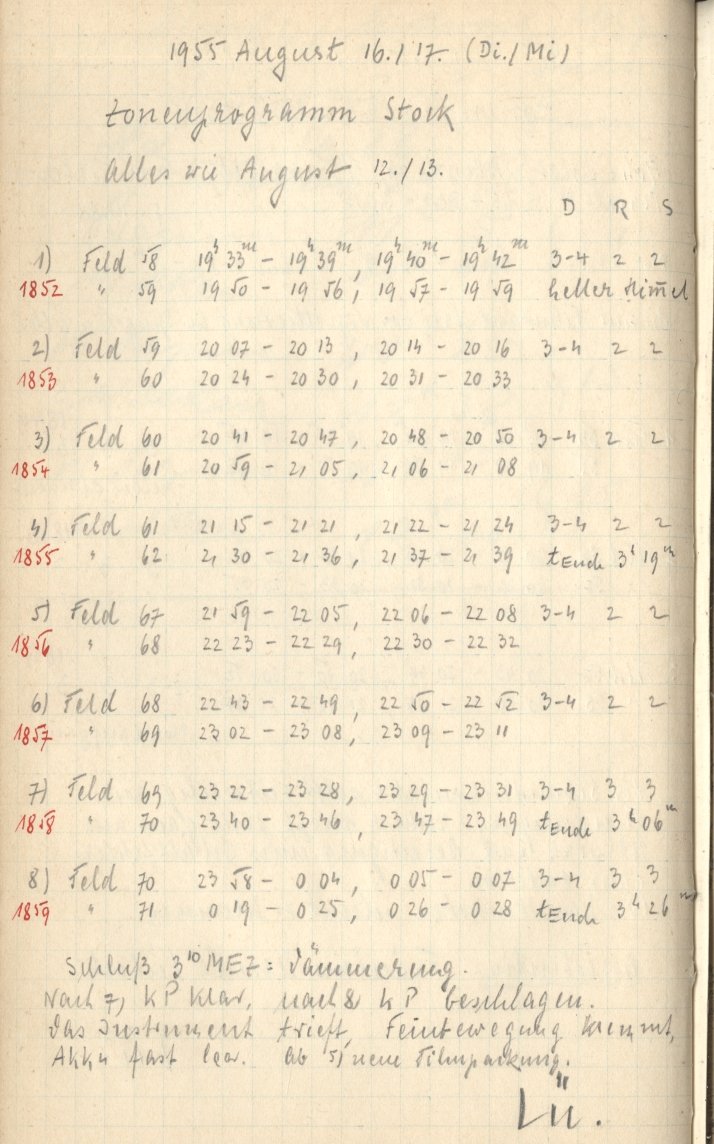 1955 August 16./17. (Di./Mi)
Zonenprogramm Stock
Alles wie August 12./13.
D R S
1) Feld 58 19h 33m - 19h 39m, 19h 40m - 19h 42m 3-4 2 2
1852 " 59 19 50 - 19 56, 19 57 - 19 59 heller Him̄el
2) Feld 59 20 07 - 20 13, 20 14 - 20 16 3-4 2 2
1853 " 60 20 24 - 20 30, 20 31 - 20 33
3) Feld 60 20 41 - 20 47, 20 48 - 20 50 3-4 2 2
1854 " 61 20 59 - 21 05, 21 06 - 21 08
4) Feld 61 21 15 - 21 21, 21 22 - 21 24 3-4 2 2
1855 " 62 21 30 - 21 36, 21 37 - 21 39 tEnde 3h 19m
5) Feld 67 21 59 - 22 05, 22 06 - 22 08 3-4 2 2
1856 " 68 22 23 - 22 29, 22 30 - 22 32
6) Feld 68 22 43 - 22 49, 22 50 - 22 52 3-4 2 2
1857 " 69 23 02 - 23 08, 23 09 - 23 11
7) Feld 69 23 22 - 23 28, 23 29 - 23 31 3-4 3 3
1858 " 70 23 40 - 23 46, 23 47 - 23 49 tEnde 3h 06m
8) Feld 70 23 58 - 0 04, 0 05 - 0 07 3-4 3 3
1859 " 71 0 19 - 0 25, 0 26 - 0 28 tEnde 3h 26m
Schluß 3 10 MEZ = Dämmerung.
Nach 7) KP klar, nach 8 KP beschlagen.
Das Instrument trieft, Feinbewegung klemmt,
Akku fast leer. Ab 5) neue Filmpackung.
Lü.